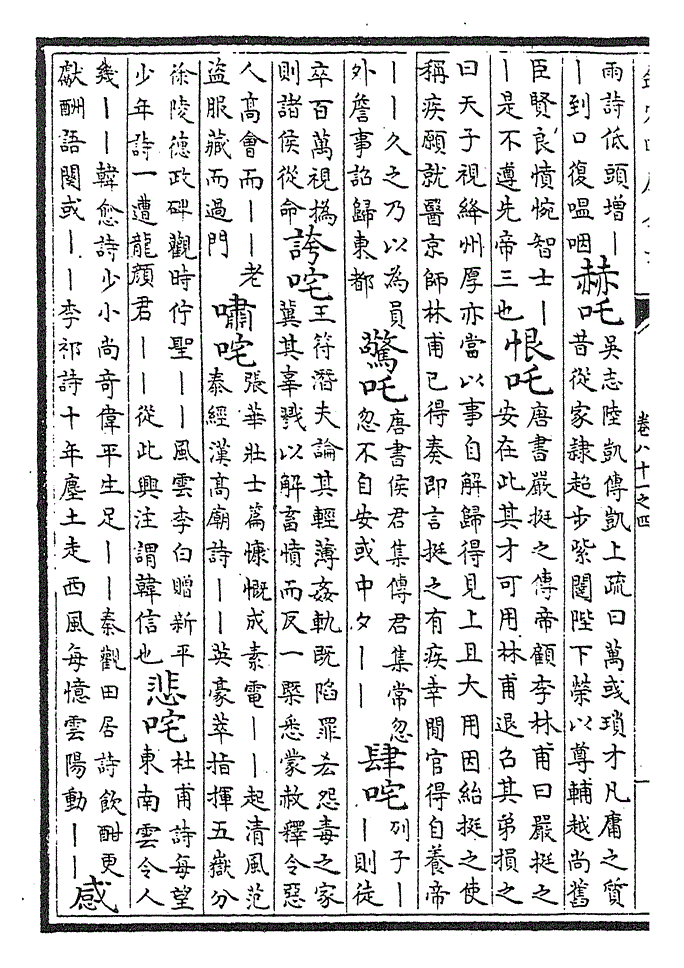 卷八十一之四
雨詩低頭增丨
丨到口復嗢咽
赫吒
吳志陸凱傳凱上疏曰萬或瑣才凡庸之質
昔從家隷超步紫闥陛下榮以尊輔越尚舊
臣賢良憤惋智士丨
丨是不遵先帝三也
恨吒
唐書嚴挺之傳帝顧李林甫曰嚴挺之
安在此其才可用林甫退召其弟損之
曰天子視絳州厚亦當以事自解歸得見上且大用因紿挺之使
稱疾願就醫京師林甫已得奏即言挺之有疾幸閒官得自養帝
丨丨久之乃以為員
外詹事詔歸東都
驚吒
唐書侯君集傳君集常忽
忽不自安或中夕丨丨
肆咤
列子丨
丨則徒
卒百萬視撝
則諸侯從命
誇咤
王符潛夫論其輕薄姦軌既陷罪法怨毒之家
冀其辜戮以解畜憤而反一槩悉蒙赦釋令惡
人髙會而丨丨老
盜服藏而過門
嘯咤
張華壯士篇慷慨成素霓丨丨起清風范
泰經漢髙廟詩丨丨英豪萃指揮五嶽分
徐陵德政碑觀時佇聖丨丨風雲李白贈新平
少年詩一遭龍顔君丨丨從此興注謂韓信也
悲咤
杜甫詩每望
東南雲令人
幾丨丨韓愈詩少小尚奇偉平生足丨丨秦觀田居詩飲酣更
獻酬語闋或丨丨李祁詩十年塵土走西風每憶雲陽動丨丨
感